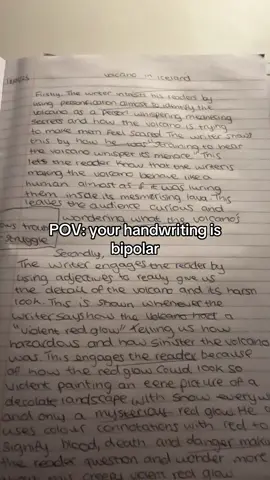 volcano in iceland
Firstly, The writer interests his readers by
using personification almost to identify the
volcano as a person whispering menacing
secrets and how the volcano is trying
to make them feel scared The writer shows
this by how he was "straining to hear
the volcano whisper its menace." This
lets the reader know that the writer is
making the volcano behave like a
human almost as if it was luring
them inside its mesmerising lava. This
leaves the audience curious and
wondering what the volcano's
struggle
POV: your handwriting is
bipolar
Secondly,
The writer engages the reader by
using adjectives to really give us
the detail of the volcano and its harsh
look. This is shown whenever the
writer says how the volcano had a
"violent red glow" telling us how
hazardous and how sinister the volcano
was. This engages the reader because
of how the red glow could look so
violent painting an eerie picture of a
desolate landscape with snow everyw
and only a mysterious red glow. He
uses colour connotations with red to
signify blood, death and danger making
the reader question and wonder more